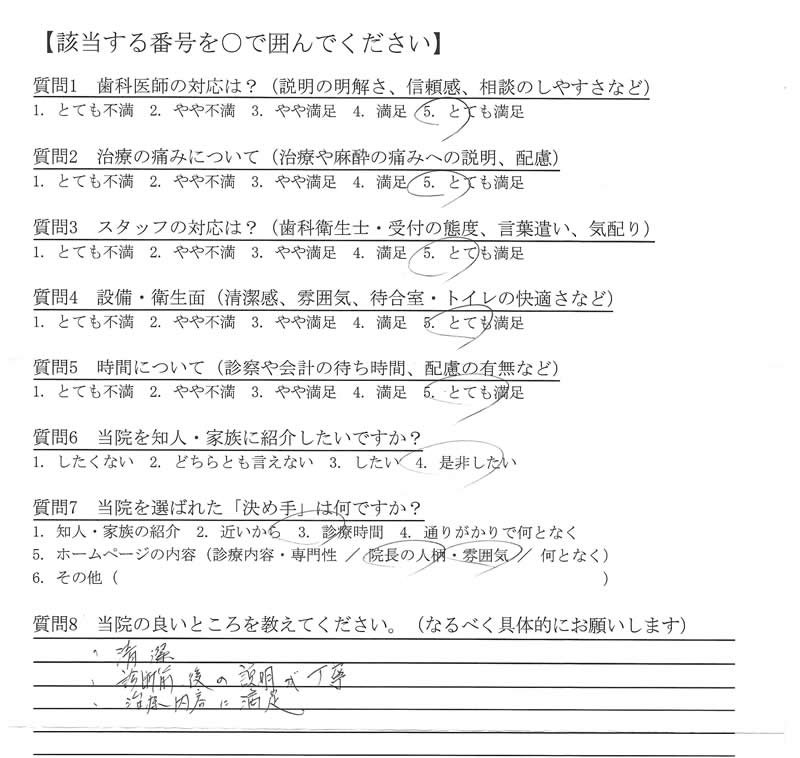 【該当する番号を〇で囲んでください】
質問1 歯科医師の対応は？（説明の明解さ、信頼感、相談のしやすさなど）
1. とても不満 2. やや不満 3. やや満足 4. 満足 5. とても満足
質問2 治療の痛みについて（治療や麻酔の痛みへの説明、配慮）
1. とても不満 2. やや不満 3. やや満足 4. 満足 5. とても満足
質問3 スタッフの対応は？（歯科衛生士・受付の態度、言葉遣い、気配り）
1. とても不満 2. やや不満 3. やや満足 4. 満足 5. とても満足
質問4 設備・衛生面（清潔感、雰囲気、待合室・トイレの快適さなど）
1. とても不満 2. やや不満 3. やや満足 4. 満足 5. とても満足
質問5 時間について（診察や会計の待ち時間、配慮の有無など）
1. とても不満 2. やや不満 3. やや満足 4. 満足 5. とても満足
質問6 当院を知人・家族に紹介したいですか？
1. したくない 2. どちらとも言えない 3. したい 4. 是非したい
質問7 当院を選ばれた「決め手」は何ですか？
1. 知人・家族の紹介 2. 近いから 3. 診療時間 4. 通りがかりで何となく
5. ホームページの内容（診療内容・専門性 ／ 院長の人柄・雰囲気 ／ 何となく）
6. その他（ ）
質問8 当院の良いところを教えてください。（なるべく具体的にお願いします）
・清潔
・診断前後の説明が丁寧
・治療内容に満足